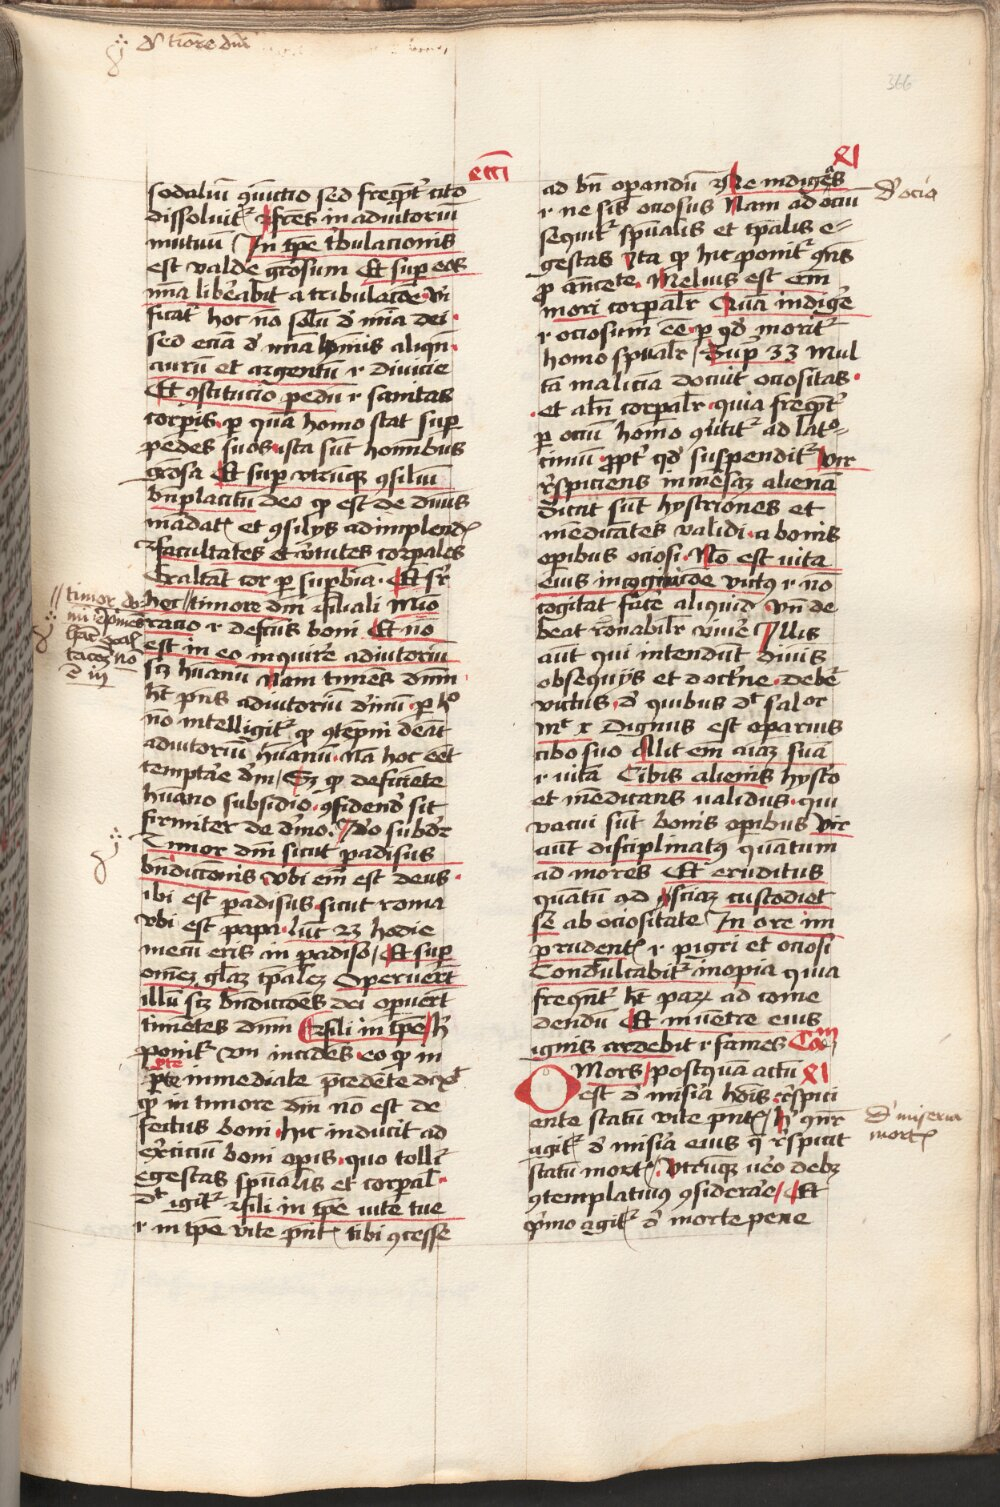 d' timore dni
366
ecci
xl
sodaliu ꝯiuctio sed freqnt' cito
dissoluit' fres in adiutoriu
mutuu In tpe t'bulacionis
est valde grosum Et super eos
mia liberabit a tribulacoe Ve
ficat' hoc no solu d' mia dei
sed ecia d' mia homis aliqn
auru et argentu r diuicie
Et ꝯstitucio pedu r sanitas
corpis p qua homo stat sup
pedes suos ista sut hominibus
grosa Et sup utrumque ꝯsiliu
bn placitu deo qp est de diuis
madat' et ꝯsilys adimplend'
facultates et v'tutes corpales
Exaltat cor p supbia Et sr
hoc timore dni filiali Mio
racio r defcus boni Et no
est in eo inquire adiutoriu
scz huanu Nam times dnm
ht pns adiutoriu d'inu p ho
no intelligit' qp ꝯtepni deat
adiutoriu huanu Na hoc eet
temptare dm Sz qp deficiete
huano subsidio ꝯfidend' sit
firmiter de dmo Ido subdr
Timor dni sicut padisus
bndiccionis vbi em est deus
ibi est padisus sicut roma
vbi est papa luc 23 hodie
mecu eris in padiso Et sup
omez glaz tpalez Operuert
illu scz bndiccoes dei opuert
timetes dnm fili in tpe h'
ponit' vn incides eo qp in
pte
pte inmediate pcedete dixt
qp in timore dni no est de
fectus boni hic inducit ad
ex'citiu boni opis quo tollit'
egestas spualis et corpal'
dt igit' fili in tpe vite tue
r in tpe vite pnt' tibi ꝯcesse
timor do
mi
no
e in
ad bn operandu Ne indiges
r ne sis ociosus Nam ad ociu
sequit' spualis et tpalis e
gestas Ita qp hic ponit' qns
p ancete Melius est em
mori corpalr Qua indige
r ociosum ee p qd morit'
homo spualr Sup 33 Mul
ta malicia docuit ociositas
et aln corpalr quia freqnt'
p ociu homo ꝯ'titit' ad lat'o
ciniu ppt' qd suspendit' Vir
r'spiciens in mesaz aliena
dicut sut hystriones et
medicates validi a bonis
opibus ociosi No est vita
eius in cognicoe victus r no
cogitat fate aliquid vn de
beat ronabilr viue Illis
aut qui intendut diuis
obsequijs et doctrine debet
victus d' quibus dt saluator
mt x Dignus est oparius
cibo suo Alit em aiaz sua
r vita Cibis alienis hystro
et medicans validus qui
vacui sut bonis opibus Vir
aut disciplinatus quatum
ad mores Et eruditus
quatu ad sciaz custodiet
se ab ociositate In ore im
prudent' r pigri et ociosi
Condulcabit' inopia quia
freqnt' ht para ad come
dendu Et in ventre eius
ignis ardebit r fames Cam
O Mors postqua actu xl
est d' misia hois r'spici
ente statu vite pnt' h' qnr
agit' d' misia eius q r'spicit
statu mort' Vtrumque vero debz
ꝯtemplatiuus ꝯsiderare Et
primo agit' d' morte pene
d' ocio
d' miseria
mort'